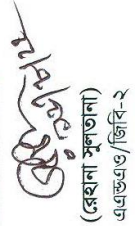 (রেহানা সুলতানা)
এএন্ডএও/জিবি-২